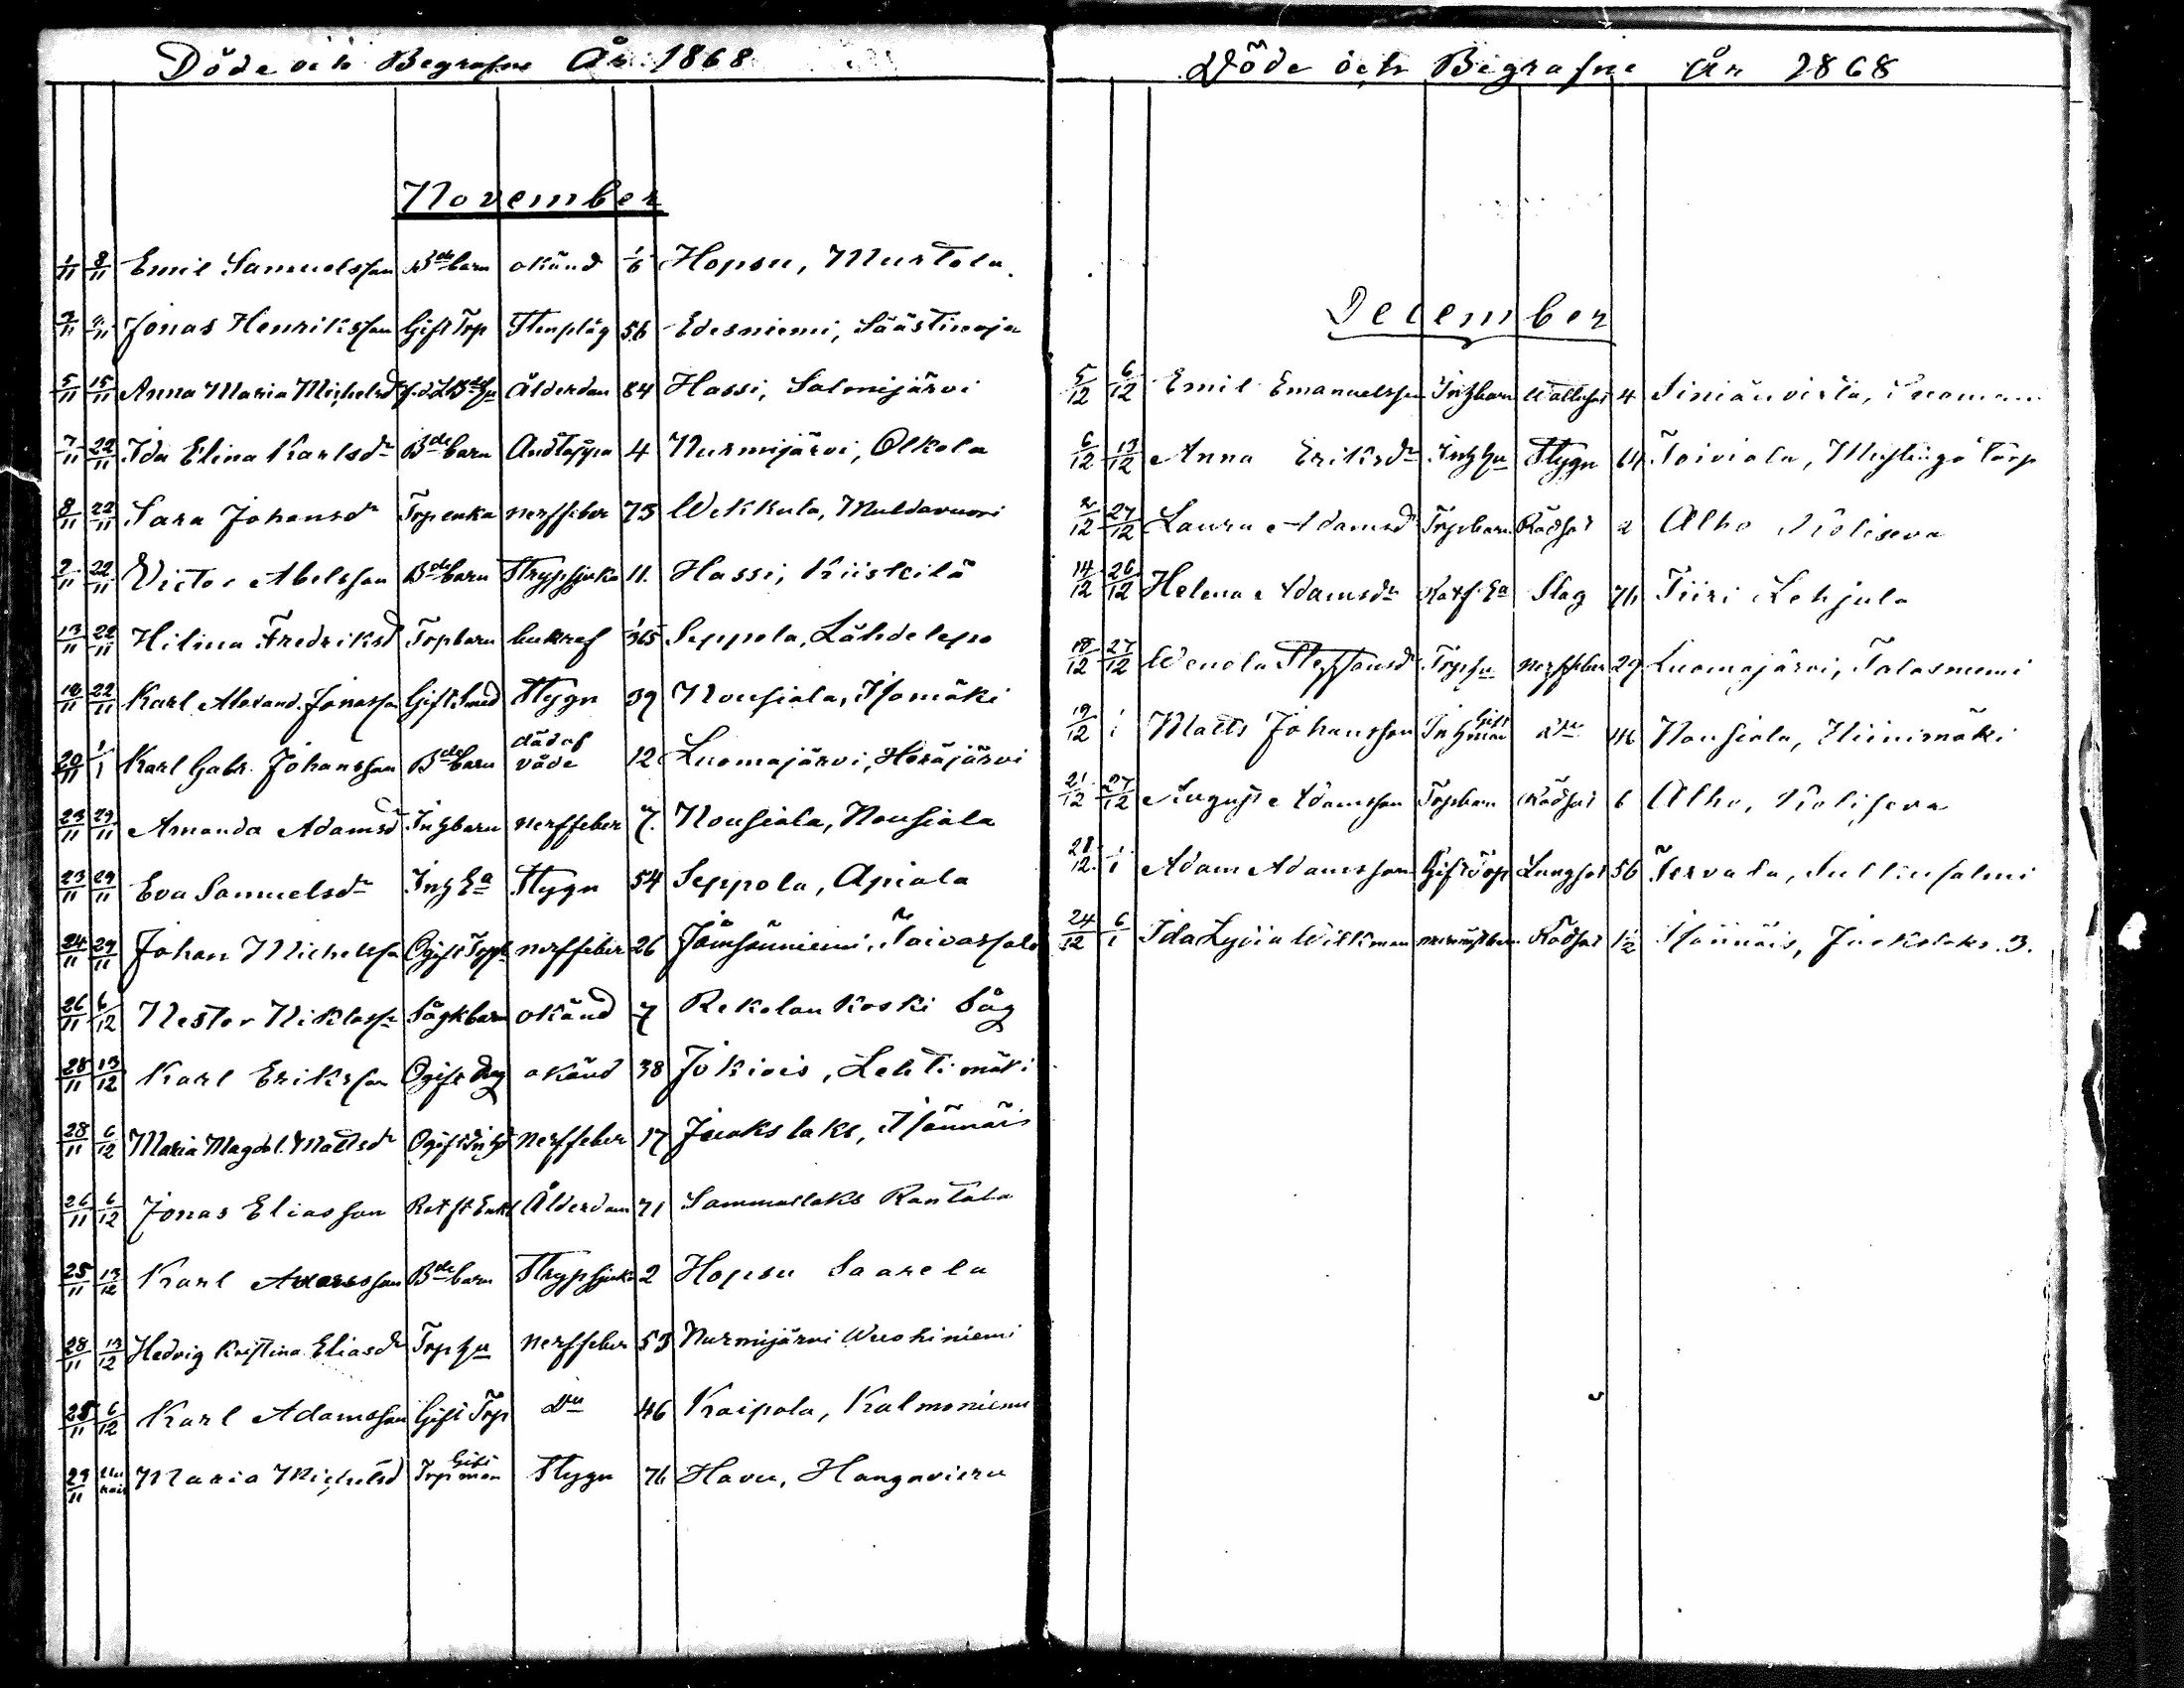 Döde och Begrafne År 1868
November
1/11 8/11 Emil Samuelsson Bde barn okänd 1/6 Hopsu, Murtola
Jonas Henriksson Gift Torp Stenplåg 56 Edesniemi, Säästinoja
5/11 15/11 Anna Maria Michelsdr Ålderdom 84 Hassi, Salmijärvi
7/11 22/11 Ida Elina Karlsdr Bde barn Andtäppa 4 Nurmijärvi, Olkola
8/11 22/11 Sara Johansdr Torpenka nerffeber 75 Wekkula, Muldavuori
2/11 22/11 Victor Abelsson Bde barn Strypsjuka 11. Hassi, Kiiskilä
13/11 22/11 Hilma Fredriksd Torpbarn bukref 1/365 Seppola, Lähdelepo
22/11 Karl Alexand. Jonasson Gift Smed Stygn 39 Nousiala, Isomäki
20/11 1/1 Karl Gabr. Johansson Bde barn dädaf våde 12 Luomajärvi, Heräjärvi
23/11 29/11 Amanda Adamsd Inhbarn nerffeber 7. Nousiala, Nousiala
23/11 29/11 Eva Samuelsdr Inh Ea Stygn 54 Seppola, Apiala
24/11 29/11 Johan Michelsson Ogift nerffeber 26 Jämsäniemi, Taivassalo
26/11 6/12 Nestor Niklasson Sågkbarn okänd 7 Rekolankoski Såg
28/11 13/12 Karl Eriksson Ogift Drg okänd 38 Jokiois, Lehtimäki
28/11 6/12 Maria Magdal. Mattsdr Ogift Inh nerffeber 17 Juokslaks, Isännäis
26/11 6/12 Jonas Eliasson Ålderdom 71 Sammallaks Rantala
25/11 13/12 Karl Bde barn Strypsjuka 2 Hopsu Saarela
28/11 13/12 Hedvig Kristina Eliasdr Torp hu nerffeber 53 Nurmijärvi Wuohiniemi
28/11 6/12 Karl Adamsson Gift Torp Do 46 Kaipola, Kalmoniemi
29/11 Maria Michelsd Gift Torp man Stygn 76 Havu, Hangavieru
Döde och Begrafne År 1868
December
5/12 6/12 Emil Emanuelsson Inhbarn Wattusot 4
6/12 13/12 Anna Eriksdr Inh hu Stygn 64 Toiviala, torp
2/12 27/12 Laura Adamsd Torpbarn Rödsot 2 Alho Koliseva
14/12 26/12 Helena Adamsdr Slag 76 Tiiri Lehjula
18/12 27/12 Wendla Steffansdr Torp hu nerffeber 29 Luomajärvi, Talasniemi
19/12 Matts Johansson Gift Inh man Do 46 Nousiala, Hiinimäki
21/12 27/12 August Adamsson Torpbarn Rödsot 6 Alho, Koliseva
28/12 1/1 Adam Adamsson Gift Torp Lungsot 56 Tervala,
24/12 6/1 Ida Lydia Wikman Rödsot 1½ Isännäis, Juokslaks. 3.